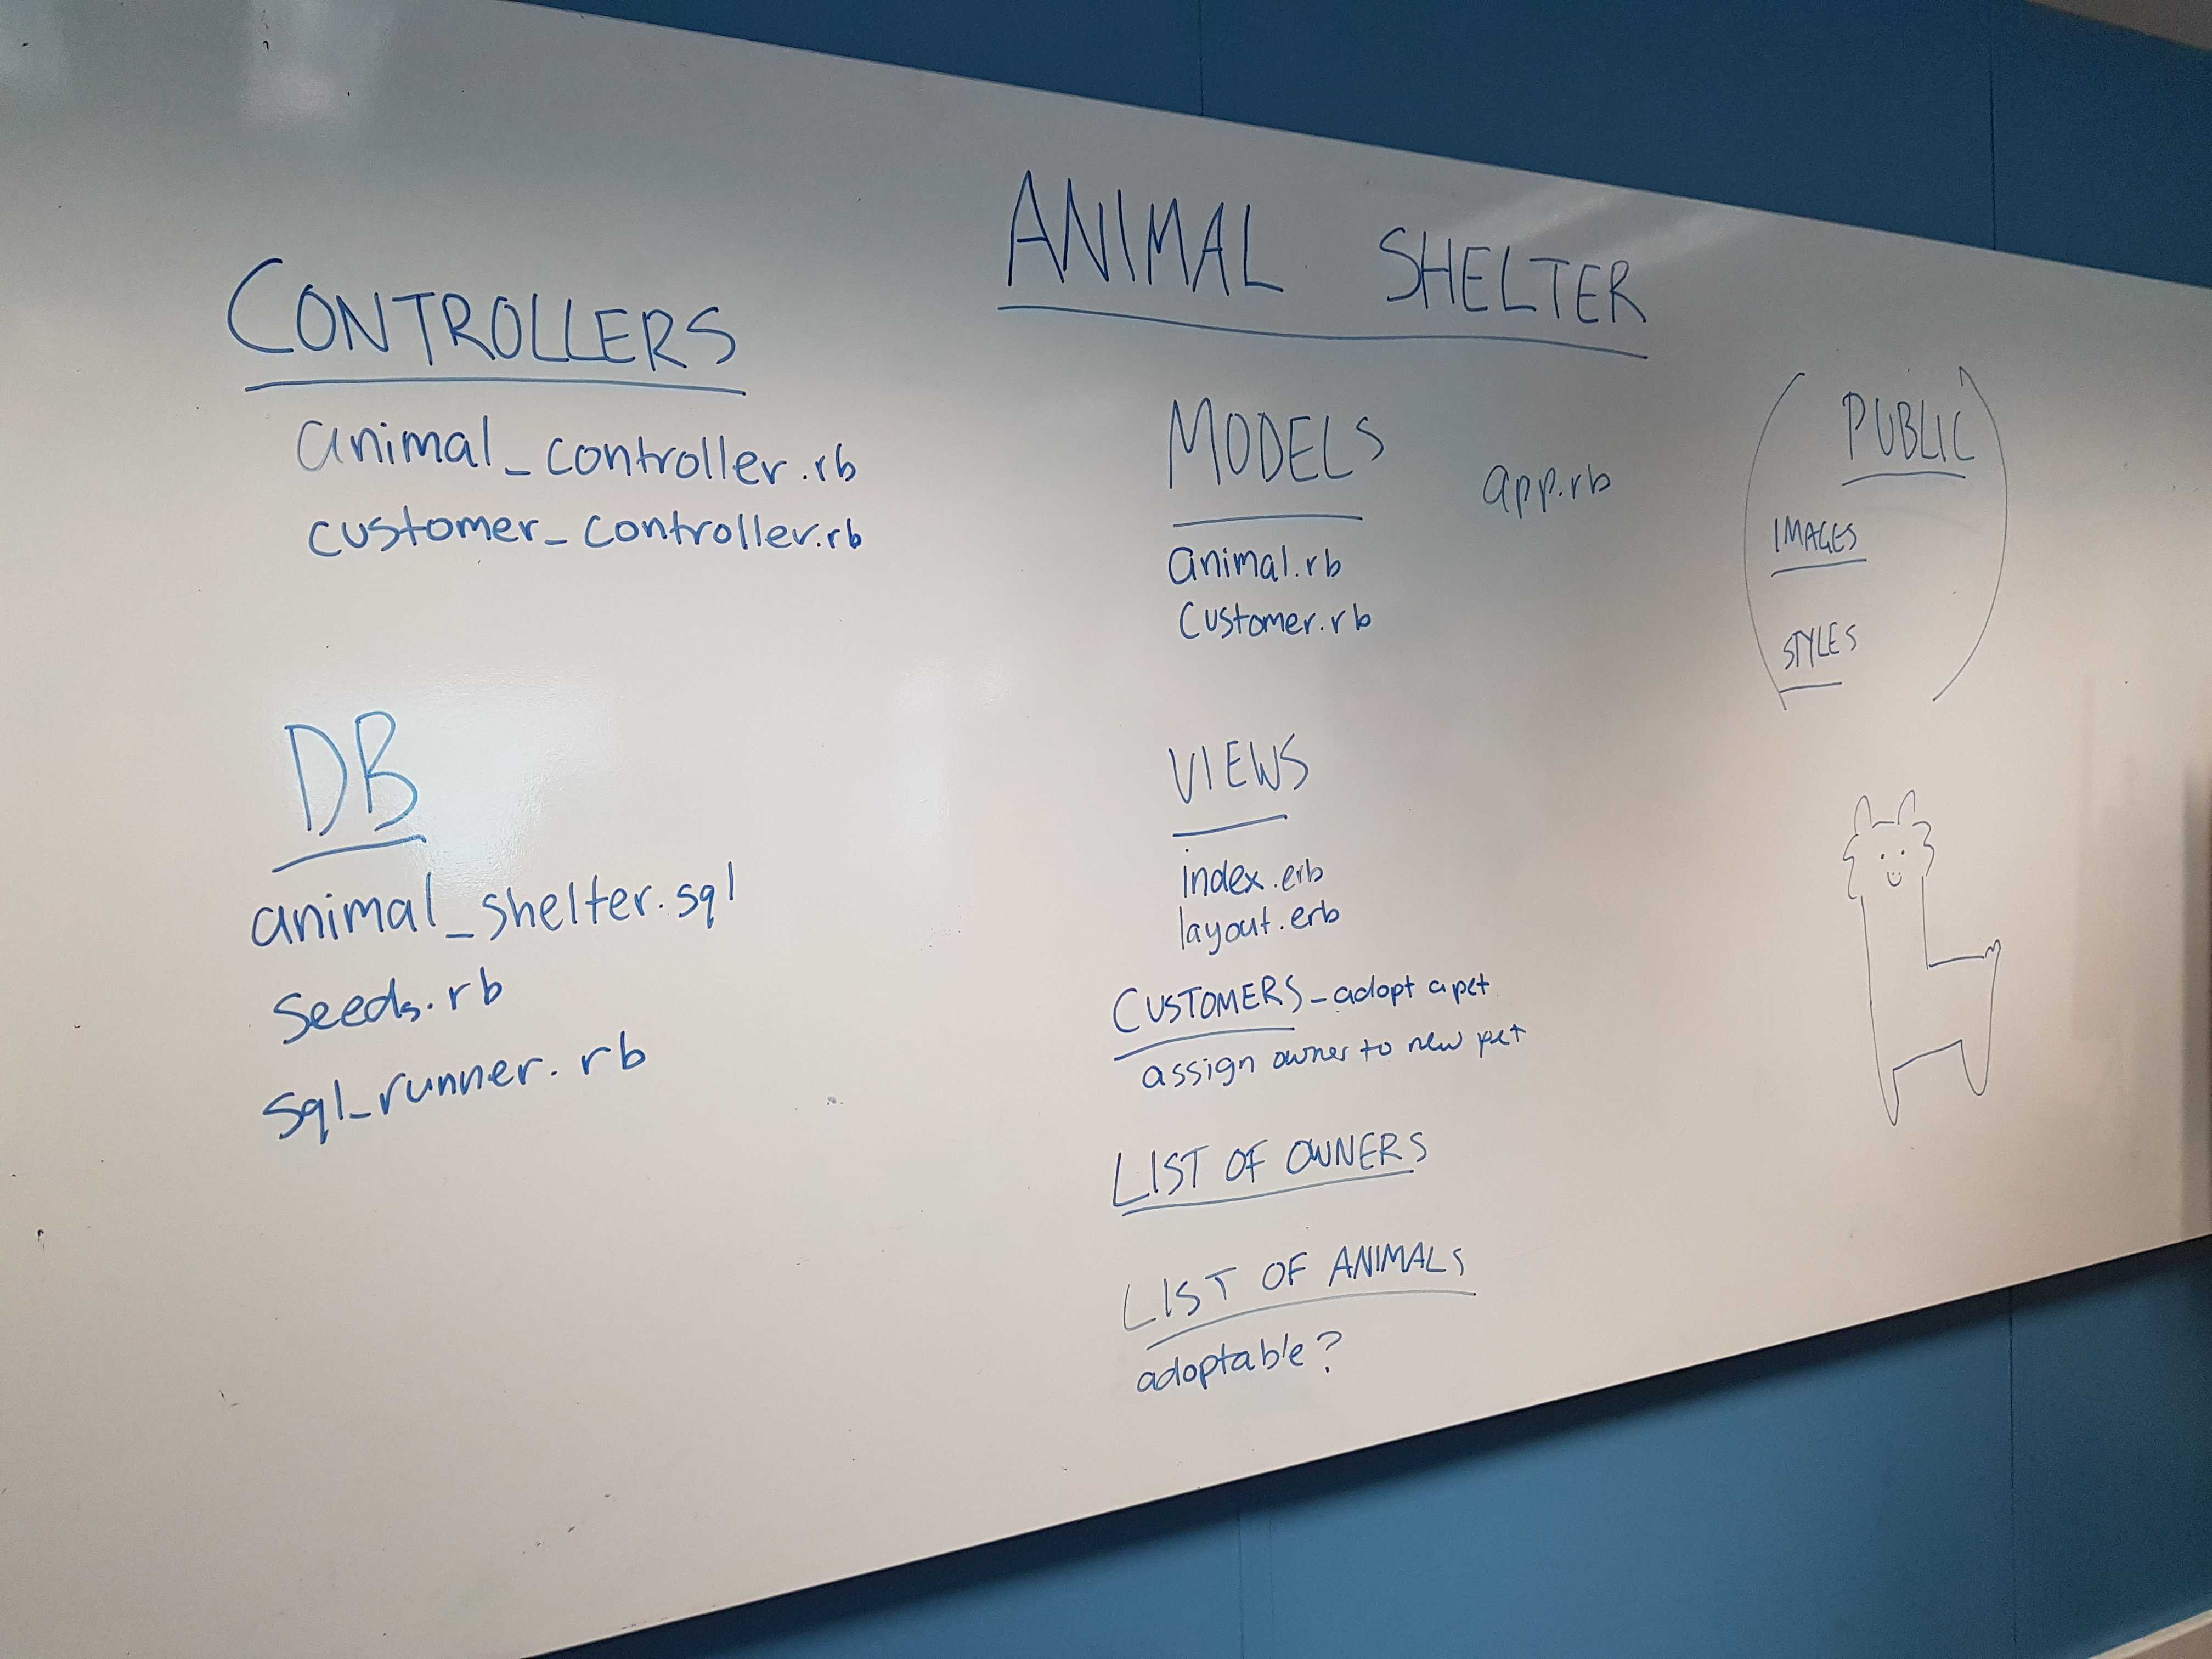 ANIMAL SHELTER
CONTROLLERS
animal_controller.rb
customer_controller.rb
DB
animal_shelter.sql
seeds.rb
sql_runner.rb
MODELS
animal.rb
customer.rb
app.rb
VIEWS
index.erb
layout.erb
CUSTOMERS - adopt a pet
assign owner to new pet
LIST OF OWNERS
LIST OF ANIMALS
adoptable?
(PUBLIC
IMAGES
STYLES)